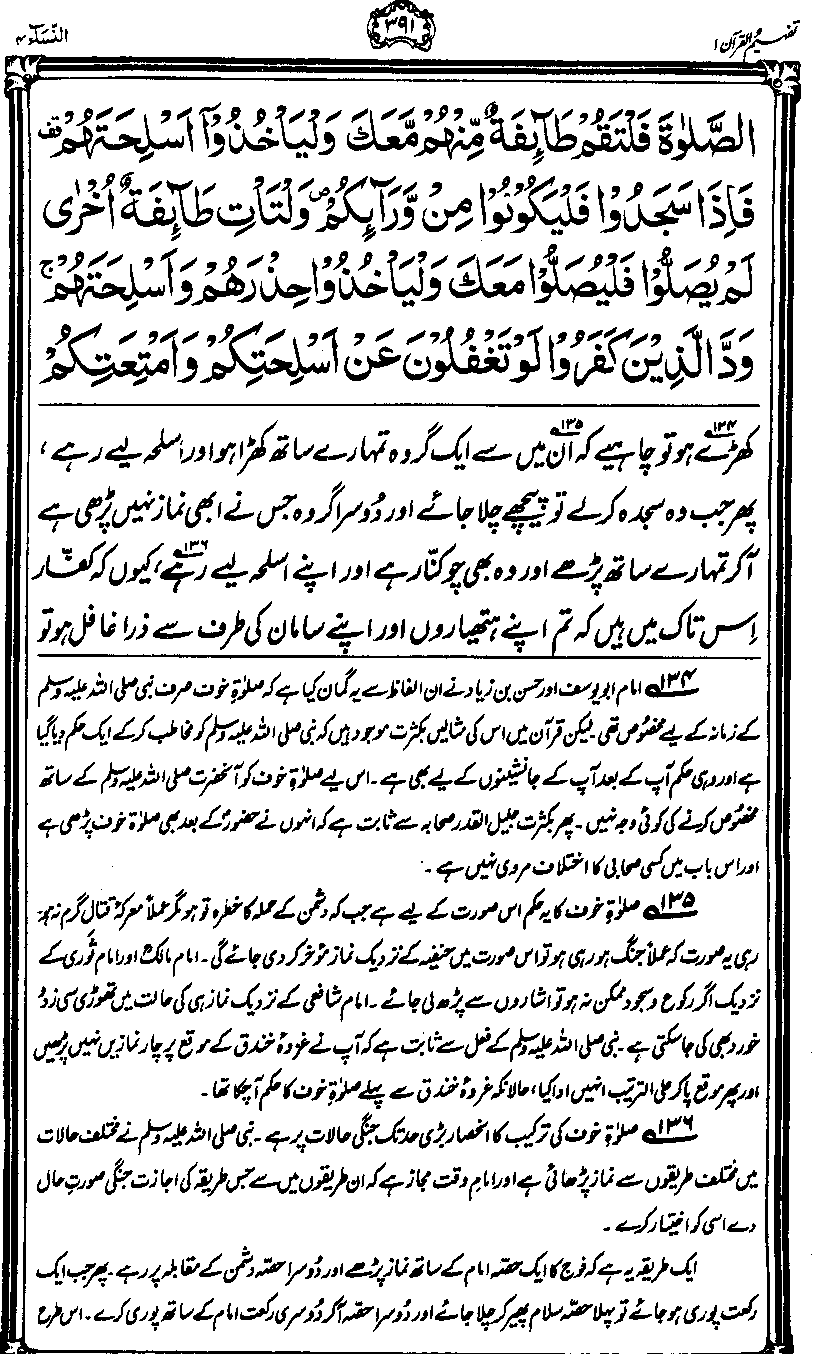 تفہیم القرآن ۱
۳۹۱
النساء ۴
الصَّلٰوةَ فَلْتَقُمْ طَآئِفَةٌ مِّنْهُمْ مَّعَكَ وَلْيَأْخُذُوْٓا اَسْلِحَتَهُمْ ۫ قف
فَاِذَا سَجَدُوْا فَلْيَكُوْنُوْا مِنْ وَّرَآئِكُمْ ۪ وَلْتَاْتِ طَآئِفَةٌ اُخْرٰى
لَمْ يُصَلُّوْا فَلْيُصَلُّوْا مَعَكَ وَلْيَأْخُذُوْا حِذْرَهُمْ وَاَسْلِحَتَهُمْ ۚ
وَدَّ الَّذِيْنَ كَفَرُوْا لَوْ تَغْفُلُوْنَ عَنْ اَسْلِحَتِكُمْ وَاَمْتِعَتِكُمْ
کھڑے۱۳۴ ہو تو چاہیے کہ ان۱۳۵ میں سے ایک گروہ تمہارے ساتھ کھڑا ہو اور اسلحہ لیے رہے،
پھر جب وہ سجدہ کر لے تو پیچھے چلا جائے اور دُوسرا گروہ جس نے ابھی نماز نہیں پڑھی ہے
آکر تمہارے ساتھ پڑھے اور وہ بھی چوکنّا رہے اور اپنے اسلحہ لیے رہے۱۳۶، کیوں کہ کفّار
اِس تاک میں ہیں کہ تم اپنے ہتھیاروں اور اپنے سامان کی طرف سے ذرا غافل ہو تو
۱۳۴ امام ابو یوسف اور حسن بن زیاد نے ان الفاظ سے یہ گمان کیا ہے کہ صلوٰۃِ خوف صرف نبی صلی اللہ علیہ وسلم
کے زمانہ کے لیے مخصُوص تھی۔ لیکن قرآن میں اس کی مثالیں بکثرت موجود ہیں کہ نبی صلی اللہ علیہ وسلم کو مخاطب کر کے ایک حکم دیا گیا
ہے اور وہی حکم آپ کے بعد آپ کے جانشینوں کے لیے بھی ہے۔ اس لیے صلوٰۃِ خوف کو آنحضرت صلی اللہ علیہ وسلم کے ساتھ
مخصُوص کرنے کی کوئی وجہ نہیں۔ پھر بکثرت جلیل القدر صحابہ سے ثابت ہے کہ انہوں نے حضورؐ کے بعد بھی صلوٰۃِ خوف پڑھی ہے
اور اس باب میں کسی صحابی کا اختلاف مروی نہیں ہے۔
۱۳۵ صلوٰۃِ خوف کا یہ حکم اس صورت کے لیے ہے جب کہ دشمن کے حملہ کا خطرہ تو ہو مگر عملاً معرکۂ قتال گرم نہ ہو۔
رہی یہ صورت کہ عملاً جنگ ہو رہی ہو تو اس صورت میں حنیفہ کے نزدیک نماز مؤخر کر دی جائے گی۔ امام مالکؒ اور امام ثَوری کے
نزدیک اگر رکوع و سجود ممکن نہ ہو تو اشاروں سے پڑھ لی جائے۔ امام شافعی کے نزدیک نماز ہی کی حالت میں تھوڑی سی زدو
خورد بھی کی جا سکتی ہے۔ نبی صلی اللہ علیہ وسلم کے فعل سے ثابت ہے کہ آپ نے غزوۂ خندق کے موقع پر چار نمازیں نہیں پڑھیں
اور پھر موقع پاکر علی الترتیب انہیں ادا کیا، حالانکہ غزوۂ خندق سے پہلے صلوٰۃِ خوف کا حکم آچکا تھا۔
۱۳۶ صلوٰۃِ خوف کی ترکیب کا انحصار بڑی حد تک جنگی حالات پر ہے۔ نبی صلی اللہ علیہ وسلم نے مختلف حالات
میں مختلف طریقوں سے نماز پڑھائی ہے اور امامِ وقت مجاز ہے کہ ان طریقوں میں سے جس طریقہ کی اجازت جنگی صورتِ حال
دے اسی کو اختیار کرے۔
ایک طریقہ یہ ہے کہ فوج کا ایک حصّہ امام کے ساتھ نماز پڑھے اور دُوسرا حصّہ دشمن کے مقابلہ پر رہے۔ پھر جب ایک
رکعت پوری ہو جائے تو پہلا حصّہ سلام پھیر کر چلا جائے اور دُوسرا حصّہ آکر دُوسری رکعت امام کے ساتھ پوری کرے۔ اس طرح